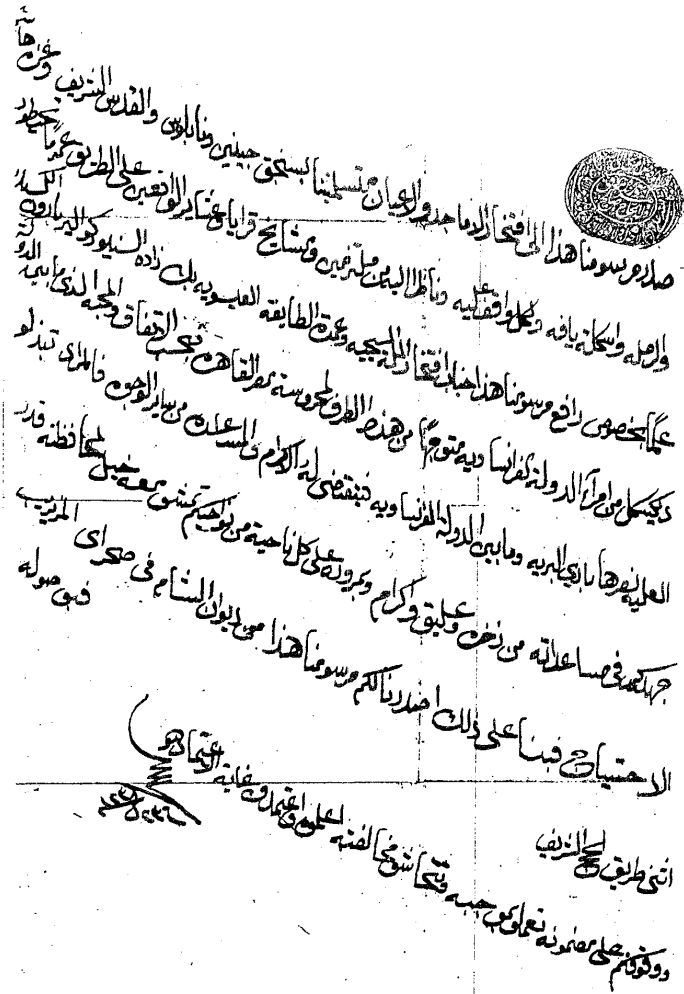 صدر مرسومنا هذا الى افتخار الاماجد والاعيان متسلمينا بسنجق جينين ونابلوس والقدس الشريف وغزه هاشم
والرمله واسكلة يافه وكل واقف عليه وناظرا اليه من ملتزمين ومشايخ قرايا وعشاير الواقعين على الطريق عموماً تحيطون
علماً بخصوص رافع مرسومنا هذا افتخار الملة المسيحيه وعمدة الطايفه العيسويه بك زاده
من امرآء الدولة الفرانساويه متوجهاً من هذا الطرف لمحروسة مصر القاهره بحسب الاتفاق والمحبه الذي مابين الدولة
العليه نصرها باري البريه ومابين الدولة الفرنساويه فيقتضي له الاكرام من ساير الوجوه فالمراد تبذلو
جهدكم في مساعداته من ذخره وعليق واكرام وبمروره على كل ناحية من نواحيكم تمشو معه خيل لمحافظته قدر
الاحتياج فبنا على ذلك اصدرنا لكم مرسومنا هذا من ديوان الشام في صحراى المزيريب
اثنى طريق الحج الشريف فبوصوله
ووقوفكم على مضمونه تعملو بموجبه وتتحاشو مخالفته اعلموه واعتمدوه غاية الاعتماد